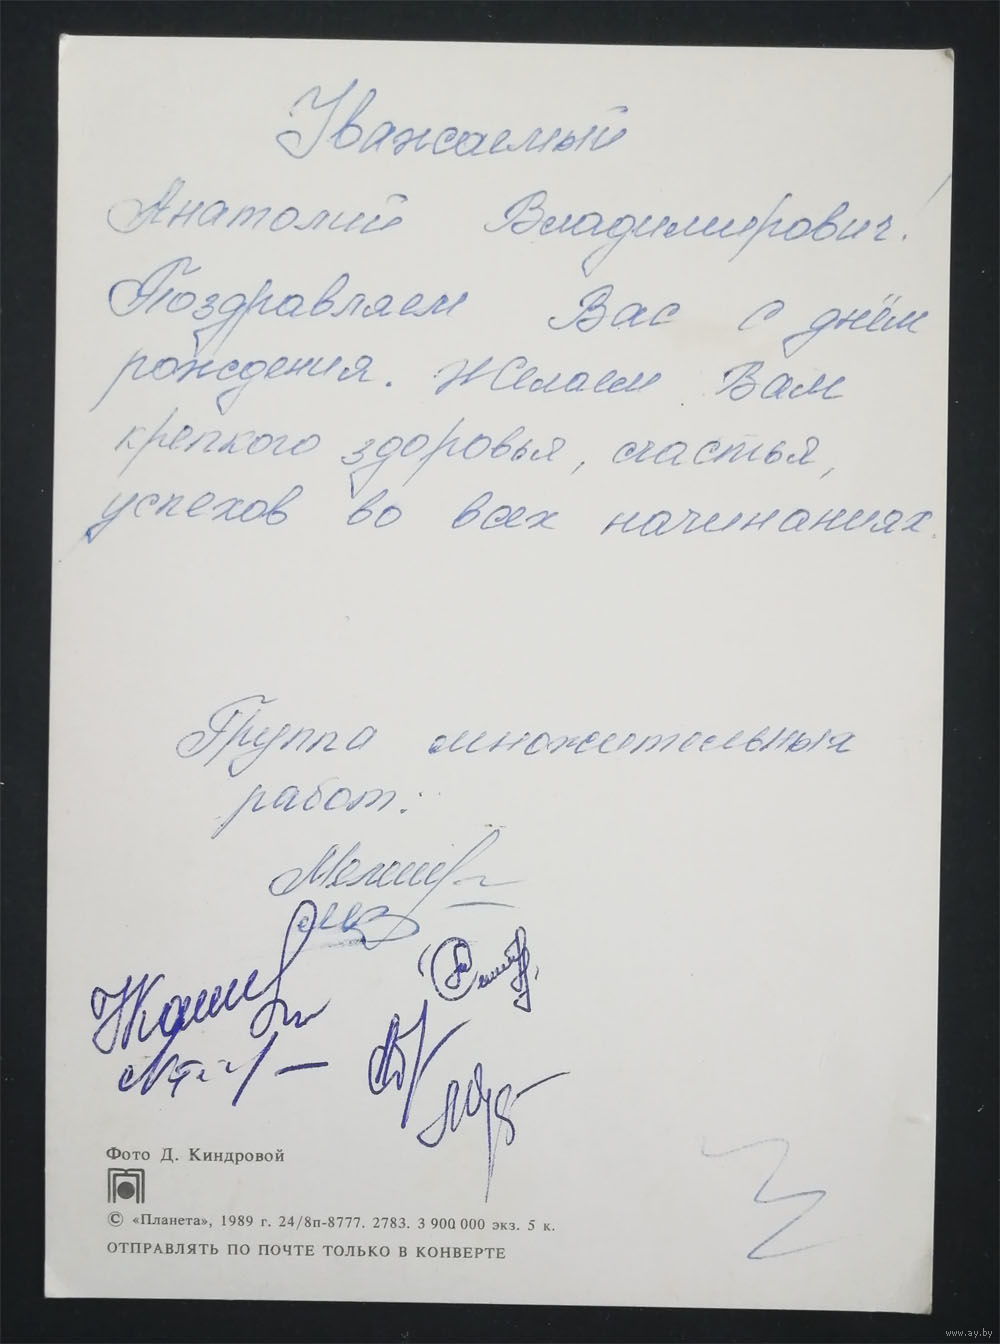 Уважаемый
Анатолий Владимирович!
Поздравляем Вас с днём
рождения. Желаем Вам
крепкого здоровья, счастья,
успехов во всех начинаниях.
Группа множительных
работ:
Фото Д. Киндровой
© «Планета», 1989 г. 24/8п-8777. 2783. 3 900 000 экз. 5 к.
ОТПРАВЛЯТЬ ПО ПОЧТЕ ТОЛЬКО В КОНВЕРТЕ
www.ay.by